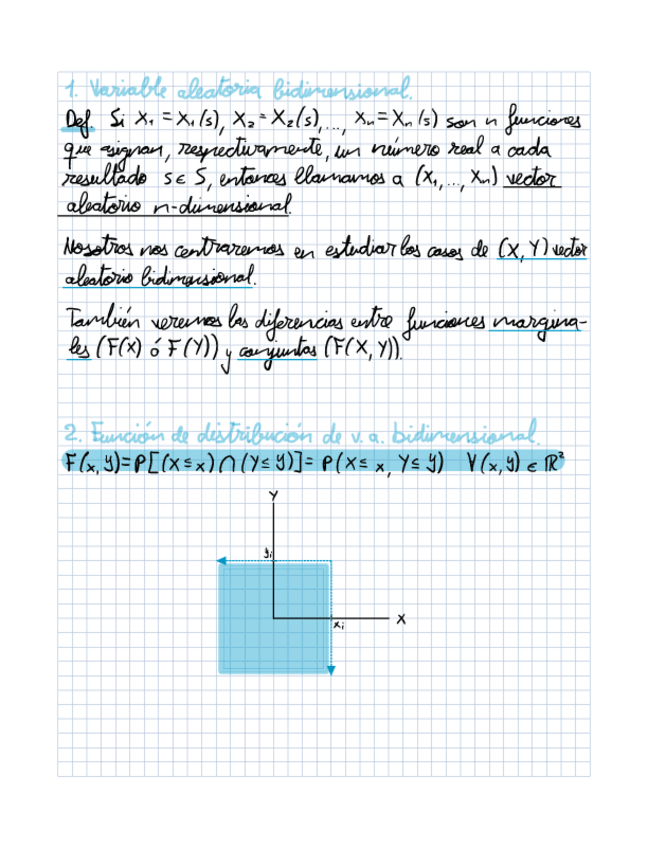 1. Variable aleatoria bidimensional.
Def. Si X₁ = X₁(s), X₂ = X₂(s),..., Xₙ = Xₙ(s) son n funciones
que asignan, respectivamente, un número real a cada
resultado s ∈ S, entonces llamamos a (X₁,..., Xₙ) vector
aleatorio n-dimensional.
Nosotros nos centraremos en estudiar los casos de (X, Y) vector
aleatorio bidimensional.
También veremos las diferencias entre funciones margina-
les (F(X) ó F(Y)) y conjuntas (F(X, Y)).
2. Función de distribución de v.a. bidimensional.
F(x, y) = P[(X ≤ x) ∩ (Y ≤ y)] = P(X ≤ x, Y ≤ y) ∀(x, y) ∈ ℝ²
Y
yᵢ
xᵢ
X